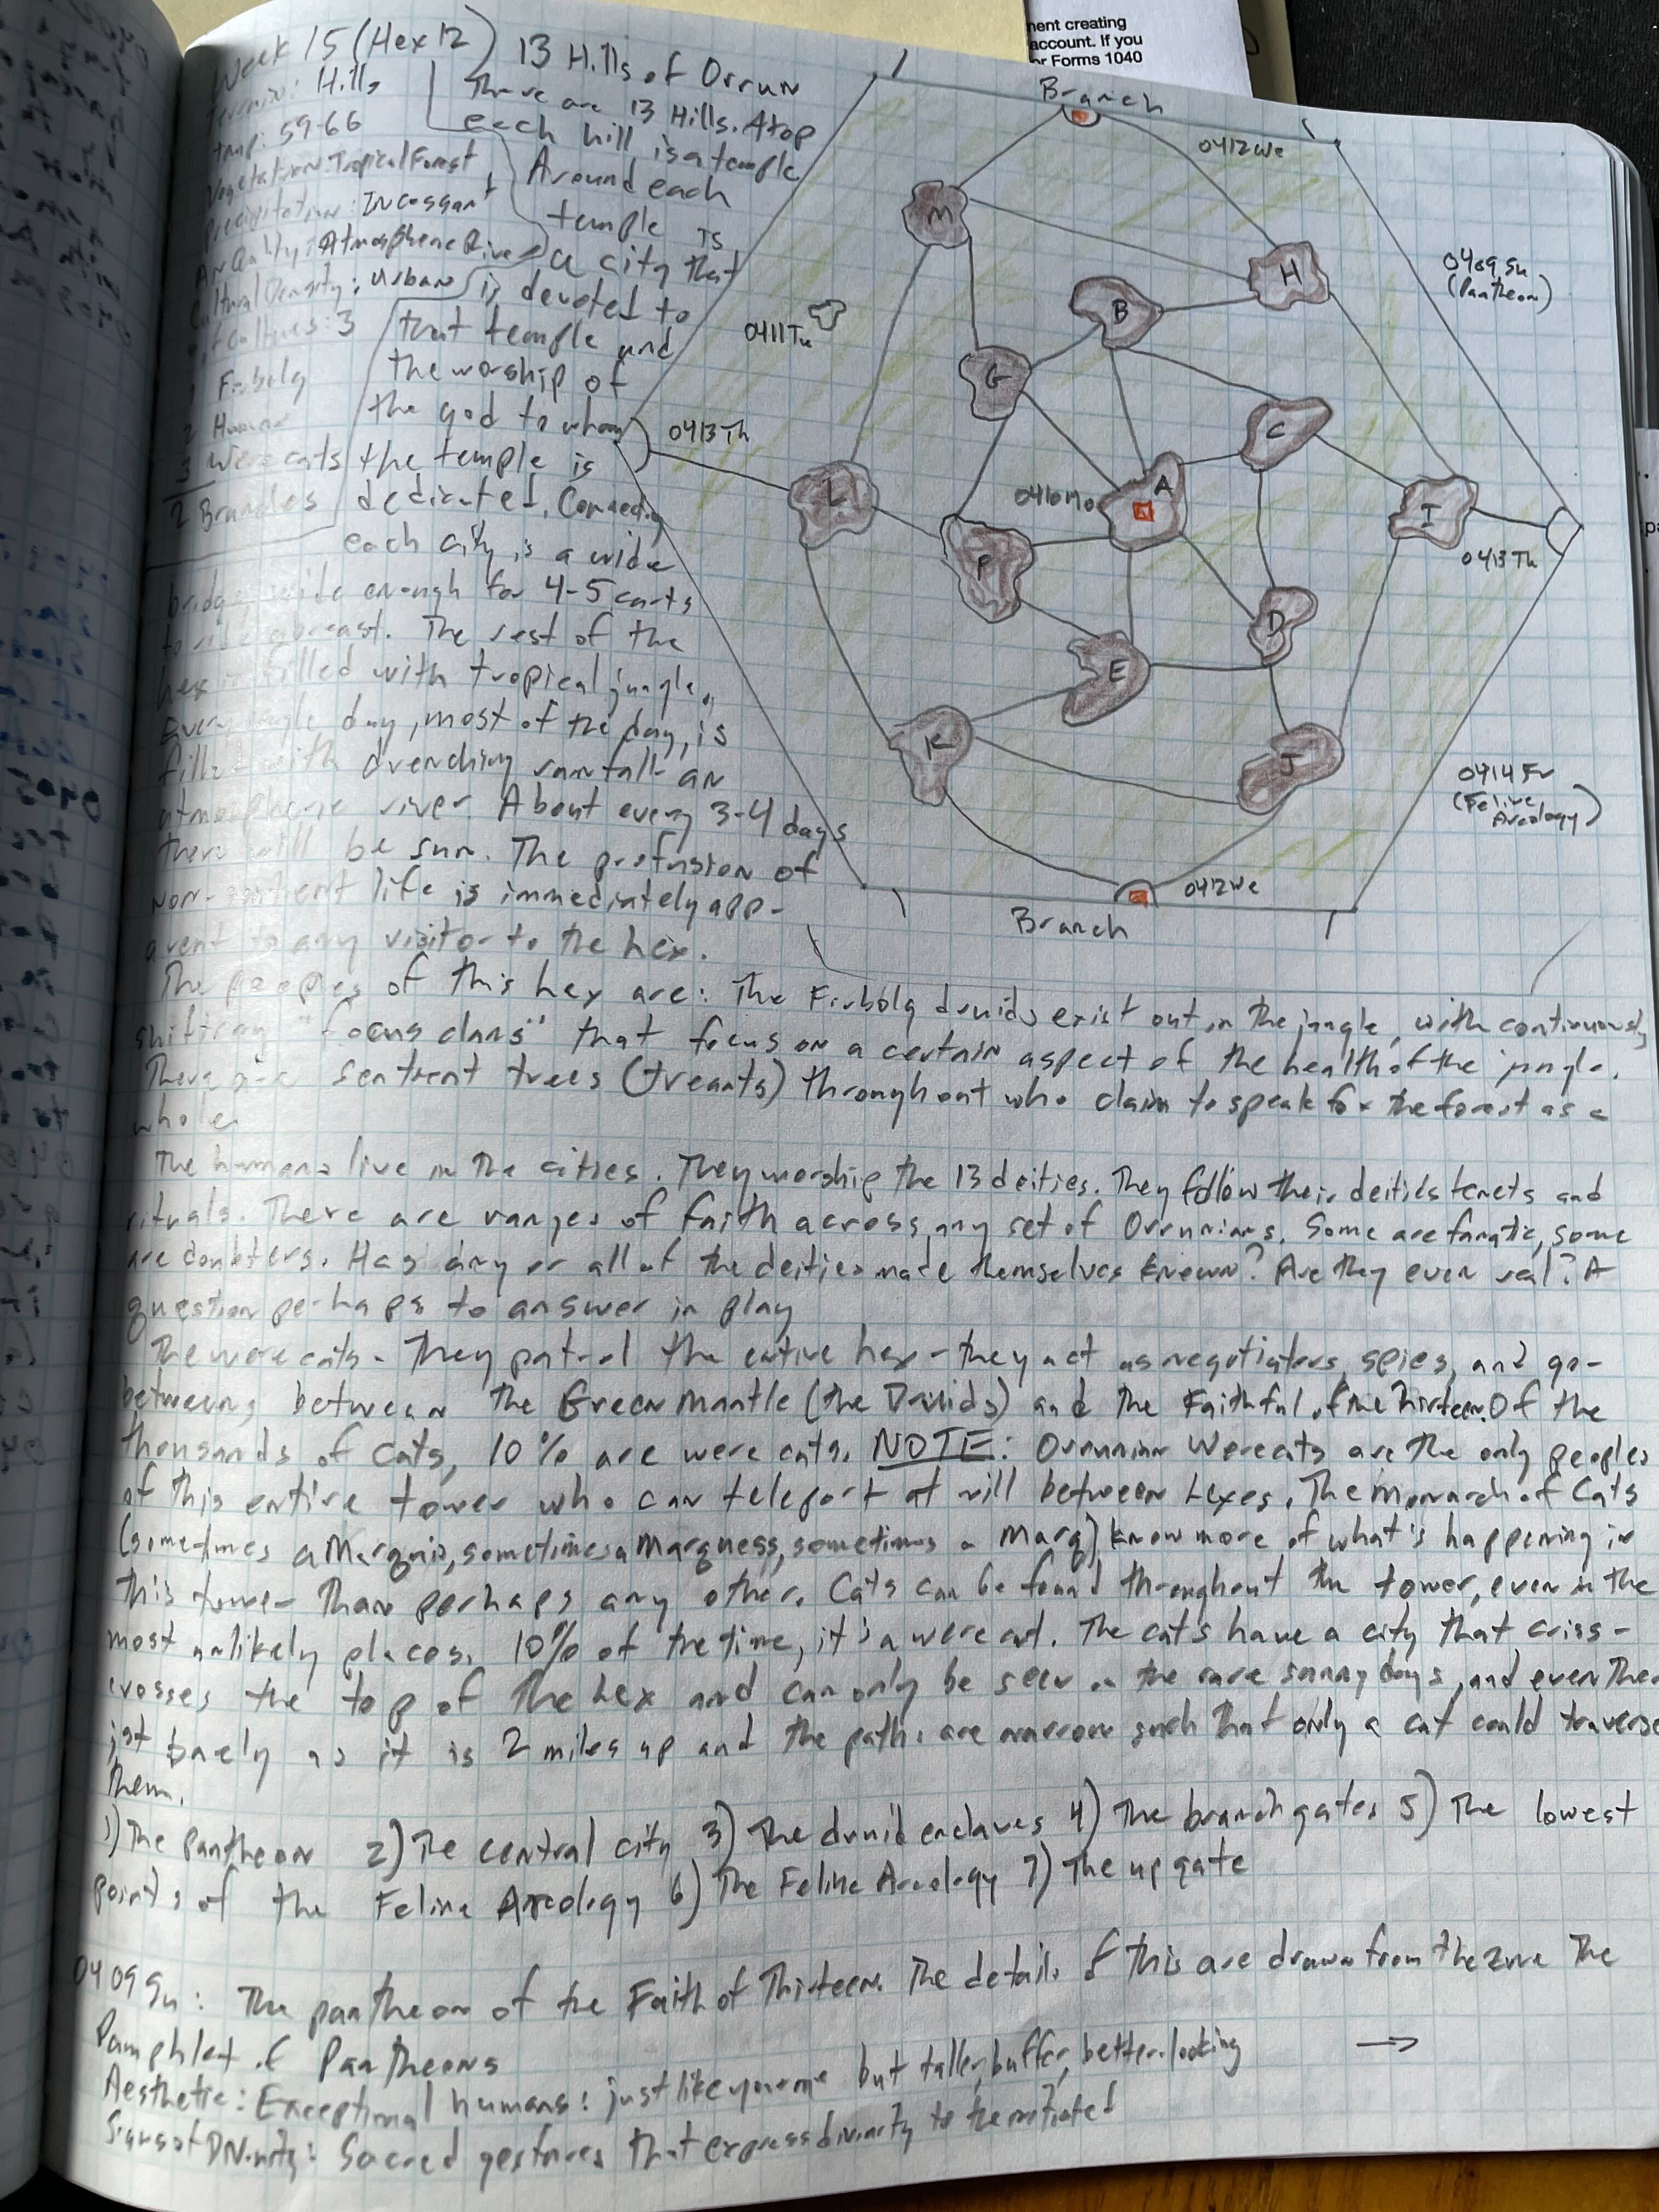 ment creating
account. If you
or Forms 1040
Week 15 (Hex 12)
Terrain: Hills
Temp: 59-66
Vegetation: Tropical Forest
Precipitation: Incessant
Air Quality: Atmospheric River
Cultural Density: Urban
# of Cultures: 3
1 Firbolg
2 Human
3 Werecats
2 Branches
13 Hills of Orrun
There are 13 Hills. Atop
each hill is a temple
Around each
temple is
a city that
is devoted to
that temple and
the worship of
the god to whom
the temple is
dedicated. Connecting
each city is a wide
bridge, wide enough for 4-5 carts
to ride abreast. The rest of the
hex is filled with tropical jungle.
Every single day, most of the day, is
filled with drenching rainfall - an
atmospheric river. About every 3-4 days
there will be sun. The profusion of
non-sentient life is immediately app-
arent to any visitor to the hex.
Branch
0412We
M
H
B
0409Su
(Pantheon)
0411Tu
G
C
0413Th
L
A
0410Mo
I
0413Th
F
D
E
K
J
0414Fr
(Feline
Arcology)
0412We
Branch
The peoples of this hex are: The Firbolg druids exist out in the jungle, with continuously
shifting "focus clans" that focus on a certain aspect of the health of the jungle.
There are sentient trees (treants) throughout who claim to speak for the forest as a
whole.
The humans live in the cities. They worship the 13 deities. They follow their deities tenets and
rituals. There are ranges of faith across any set of Orrunians. Some are fanatic, some
are doubters. Has any or all of the deities made themselves known? Are they even real? A
question perhaps to answer in play
The werecats - They patrol the entire hex - they act as negotiators, spies, and go-
betweens between the Green Mantle (the Druids) and the Faithful of the Thirteen. Of the
thousands of cats, 10% are werecats. NOTE: Orrunian Werecats are the only peoples
of this entire tower who can teleport at will between hexes. The Monarch of Cats
(sometimes a Marquis, sometimes a Marqness, sometimes a Marq) know more of what's happening in
this tower than perhaps any other. Cats can be found throughout the tower, even in the
most unlikely places. 10% of the time, it's a werecat. The cats have a city that criss-
crosses the top of the hex and can only be seen on the rare sunny days, and even then
just barely as it is 2 miles up and the paths are narrow such that only a cat could traverse
them.
1) The pantheon 2) The central city 3) The druid enclaves 4) The branch gates 5) The lowest
points of the Feline Arcology 6) The Feline Arcology 7) The up gate
0409Su: The pantheon of the Faith of Thirteen. The details of this are drawn from the zine The
Pamphlet of Pantheons
Aesthetic: Exceptional humans: just like you or me but taller, buffer, better-looking
Signs of Divinity: Sacred gestures that express divinity to the initiated
→